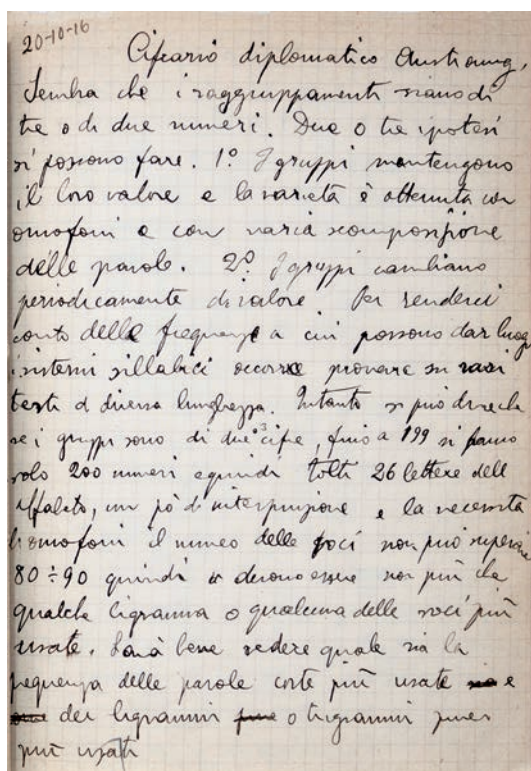 20-10-16
Cifrario diplomatico Austroung.
Sembra che i raggruppamenti siano di
tre o di due numeri. Due o tre ipotesi
si possono fare. 1º I gruppi mantengono
il loro valore e la varietà è ottenuta con
omofoni e con varia scomposizione
delle parole. 2º I gruppi cambiano
periodicamente di valore. Per renderci
conto delle frequenze a cui possono dar luogo
i sistemi sillabici occorre provare su vari
testi di diversa lunghezza. Intanto si può dire che
se i gruppi sono di due o 3 cifre, fino a 199 si hanno
solo 200 numeri e quindi tolti 26 lettere dell
alfabeto, un pò d'interpunzione e la necessità
di omofoni il numero delle voci non può superare
80÷90 quindi vi devono essere non più che
qualche bigramma o qualcuna delle voci più
usate. Sarà bene vedere quale sia la
frequenza delle parole corte più usate e
dei bigrammi o trigrammi pure
più usati